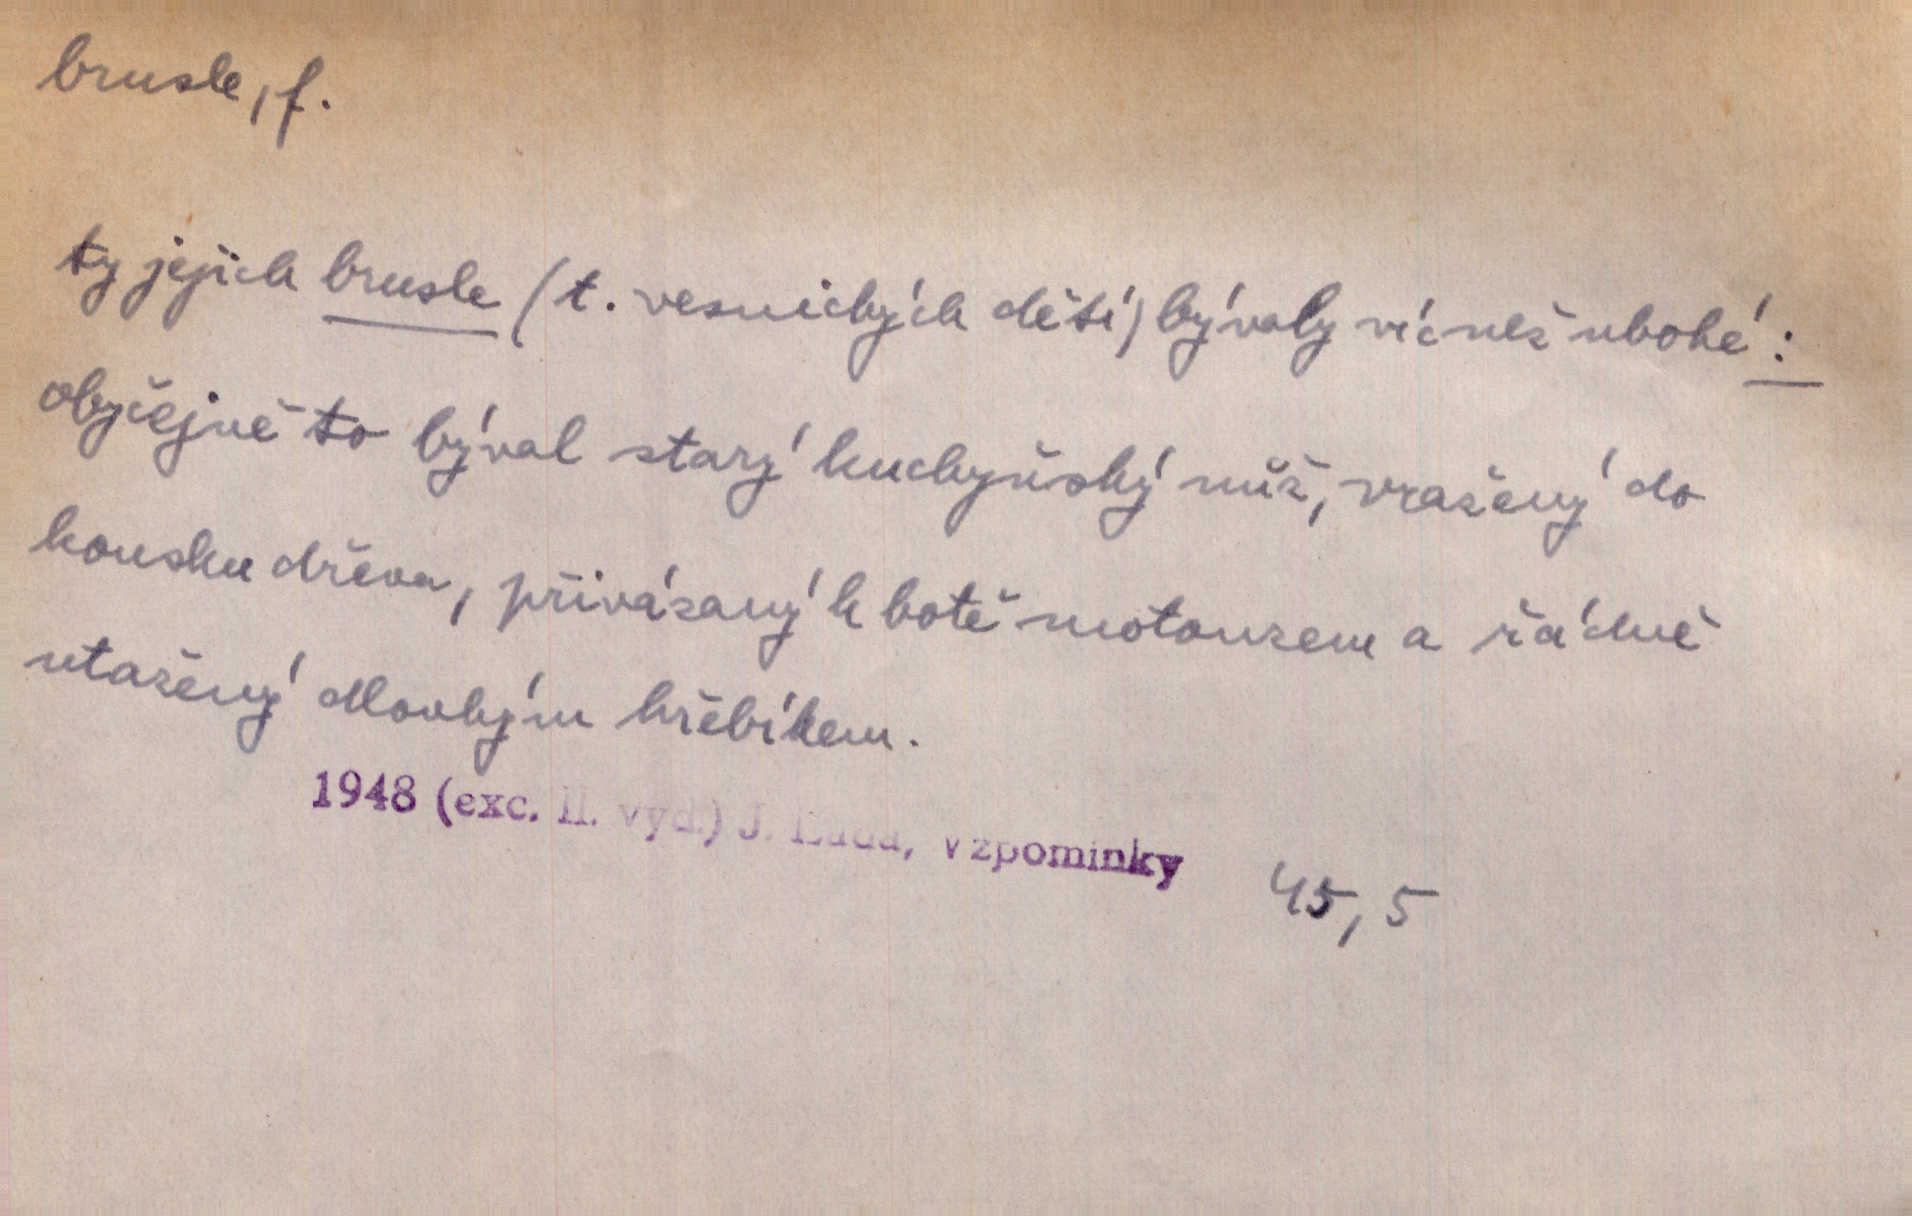 brusle, f.
ty jejich brusle (t. vesnických dětí) bývaly víc než ubohé:
obyčejně to býval starý kuchyňský nůž, vražený do
kousku dřeva, přivázaný k botě motouzem a řádně
utažený dlouhým hřebíkem.
1948 (exc. II. vyd.) J. Lada, Vzpomínky
45, 5